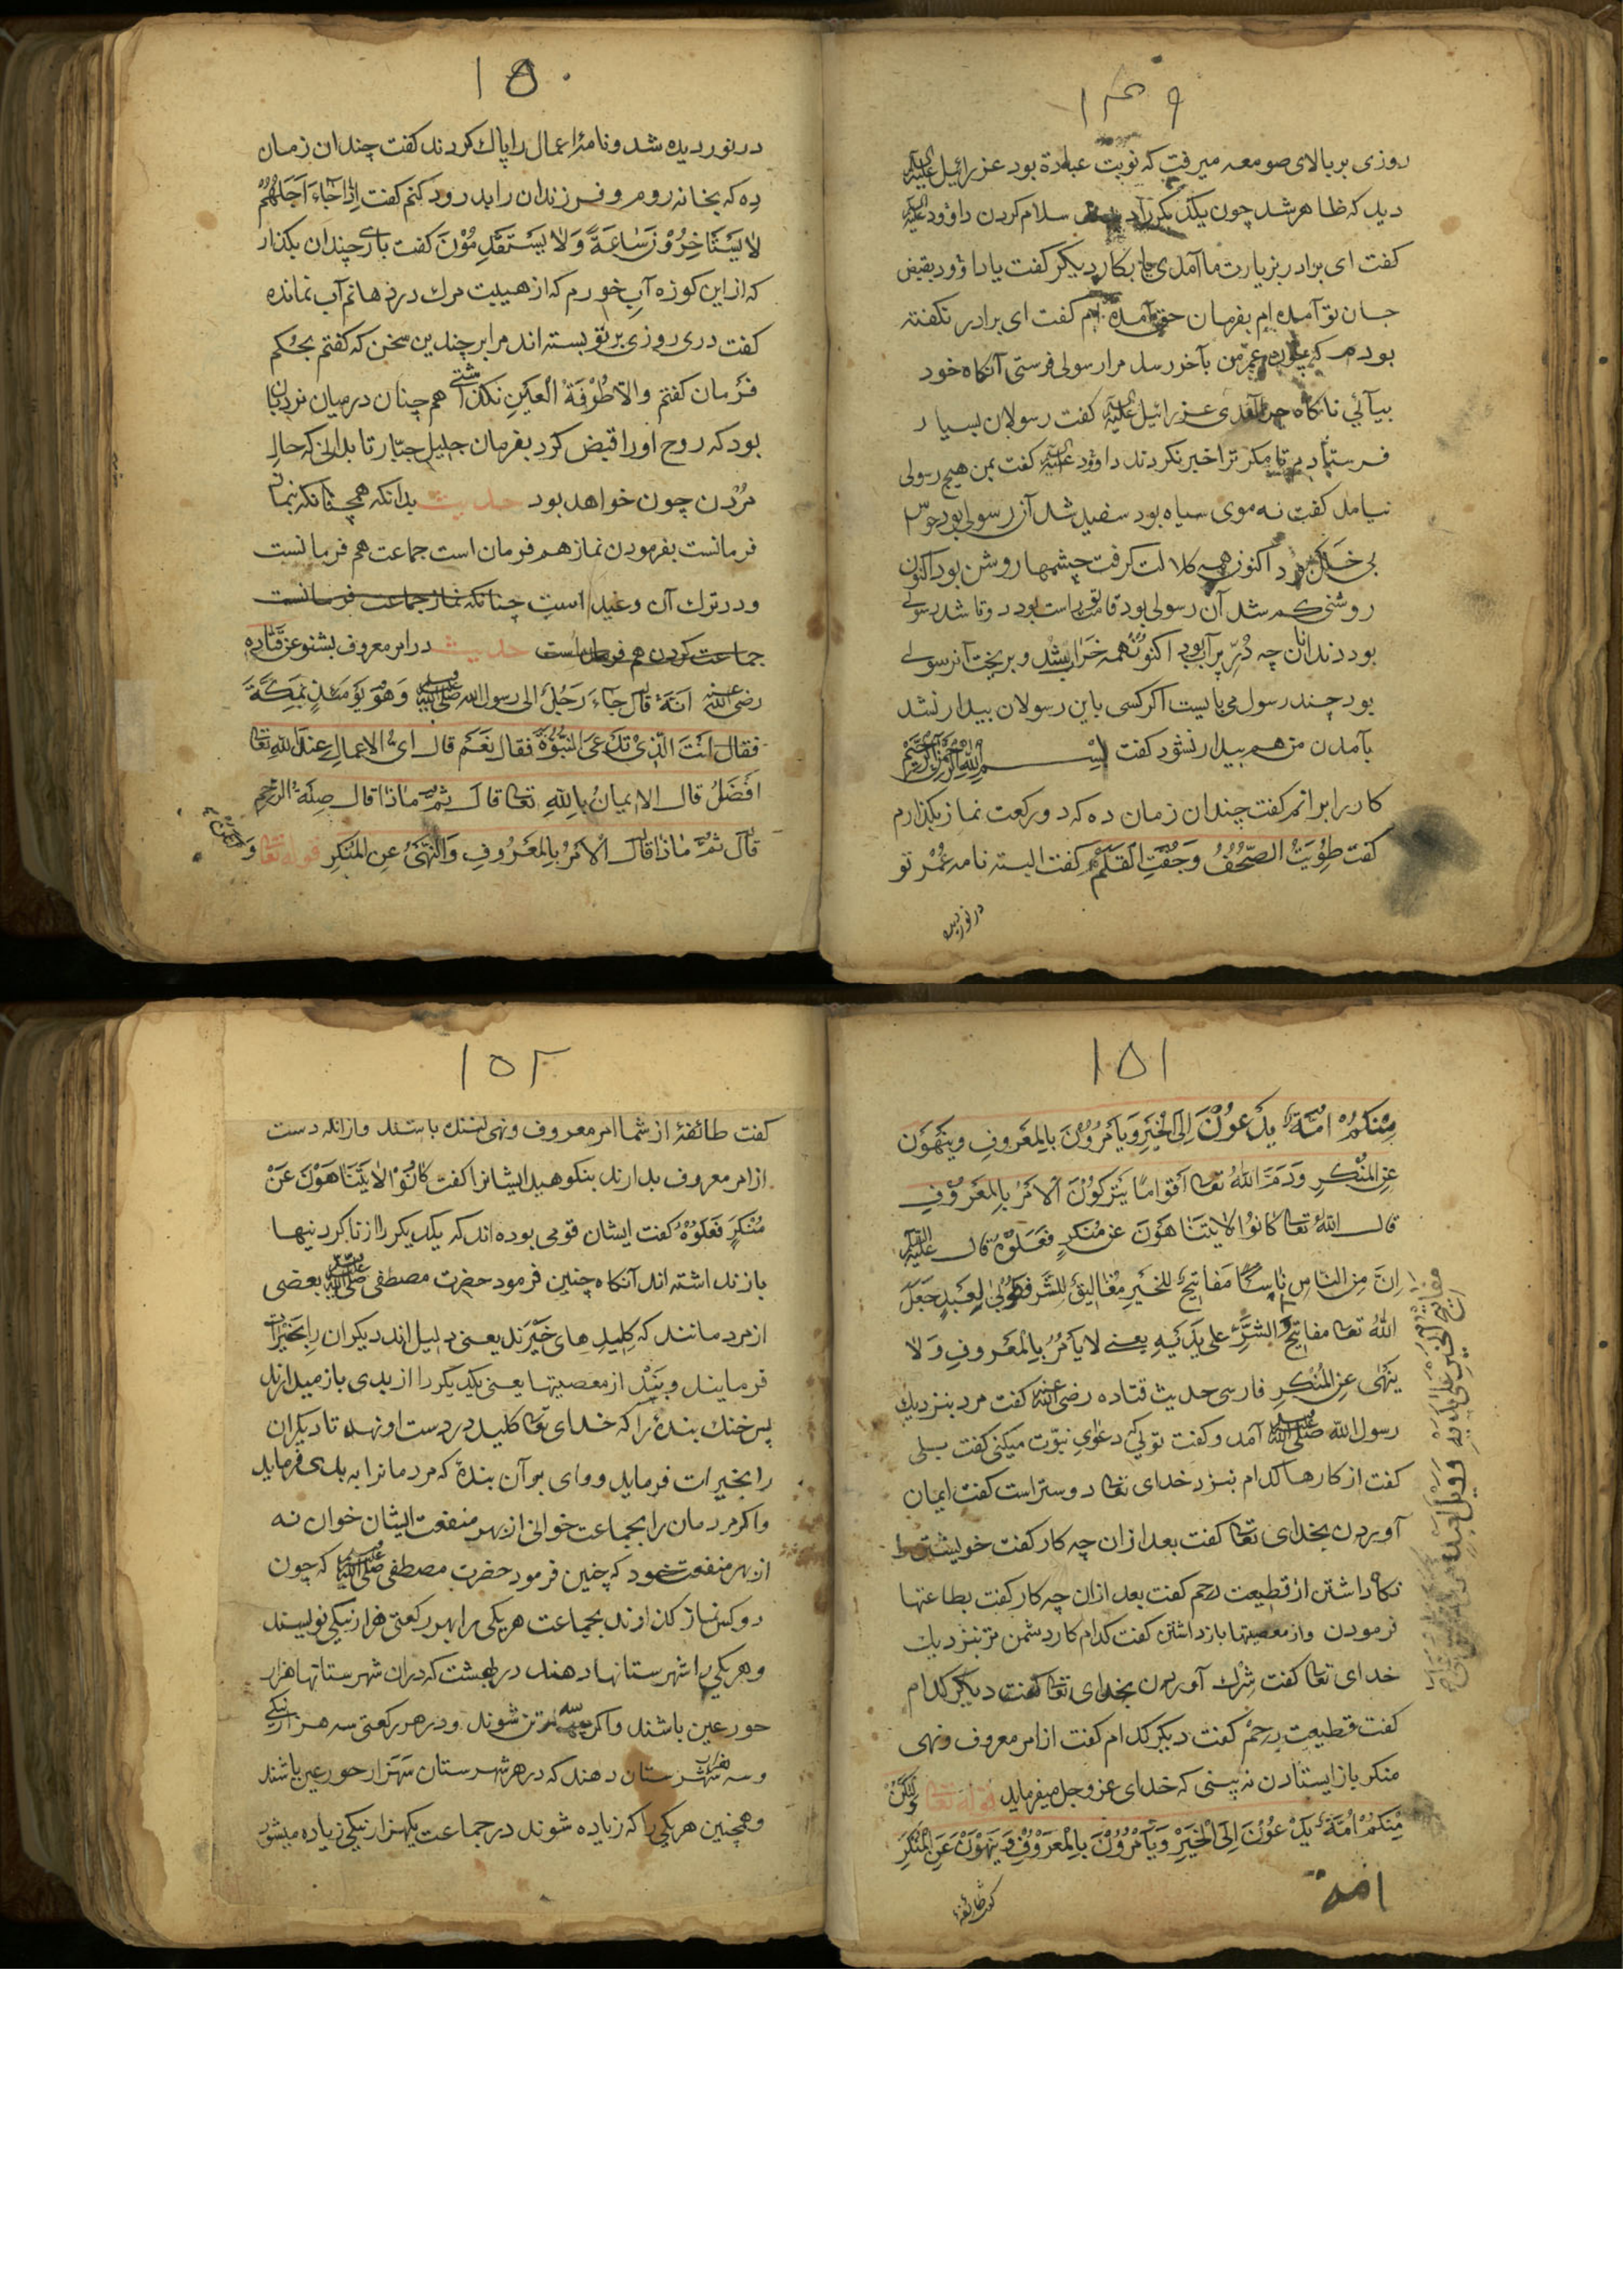 ۱۴۹
روزی بر بالای صومعه میرفت که نوبت عبادة بود عزرائیل علیه السلام
دید که ظاهر شد چون یکدیگر را سلام کردن داؤود علیه السلام
کفت ای برادر بزیارت ما آمدی یا بکار دیکر کفت یا داؤود بقبض
جان تو آمده ام بفرمان حق آمده ام کفت ای برادر نکفته
بودم که چون عمر من بآخر رسد مرا رسولی فرستی آنکاه خود
بیآئی ناکاه چرا آمدی عزرائیل علیه السلام کفت رسولان بسیار
فرستادم تا مکر ترا خبر نکردند داؤد علیه السلام کفت بمن هیچ رسولی
نیامد کفت نه موی سیاه بود سفید شد آن رسولی بود حواس
بی خلل بود اکنون همه کلالت کرفت چشمها روشن بود اکنون
روشنی کم شد آن رسولی بود قامت تو راست بود دوتا شد رسولی
بود دندانان چه دُرّ پر آب بود اکنون همه خراب شد و بریخت آن رسولی
بود چند رسول می بایست اکر کسی باین رسولان بیدار نشد
بآمدن من هم بیدار نشود کفت بِسْمِ اللهِ الرَّحْمٰنِ الرَّحِيْمِ
کار را برانم کفت چندان زمان ده که دو رکعت نماز بکذارم
کفت طُوِيَتْ الصُّحُفُ وَجُفَّتِ الْقَلَمُ کفت البته نامه عُمْر تو
در نوردیده
۱۵۰
در نوردیده شد و نامۀ اعمال را پاک کردند کفت چندان زمان
دِه که بخانه روم و فرزندان را بدرود کنم کفت اِذَا جَاءَ اَجَلُهُمْ
لَا يَسْتَأخِرُوْنَ سَاعَةً وَلَا يَسْتَقْدِمُوْنَ کفت باری چندان بکذار
که از این کوزه آب خورم که از هیبت مرک در دهانم آب نمانده
کفت دری روزی بر تو بسته اند مرا بر چندین سخن که کفتم بحکم
فرمان کفتم والّا طُرْفَةُ الْعَيْنِ نکذاشتی هم چنان در میان نردبان
بود که روح او را قبض کرد بفرمان جلیل جبّار تا بدانی که حالِ
مُرْدن چون خواهد بود حدیث بدانکه همچنانکه نماز
فرمانست بفرمودن نماز هم فرمان است جماعت هم فرمانست
ودر ترک آن وعید است چنانکه نماز جماعت فرمانست
جماعت کردن هم فرمان است حدیث در امر معروف بشنو عن قتاده
رضی الله عنه اَنَّهُ قال جَاءَ رَجُلٌ الی رسول الله صلی الله علیه وسلم وَهُوَ يَوْمَئِذٍ بِمَكَّةَ
فقال اَنْتَ الَّذِيْ تَدَّعِيَ النُّبُوَّةَ فقال نَعَمْ قال اَيُّ الاعمالِ عند الله تعا
اَفْضَلُ قال الايمانُ بِاللهِ تعا قال ثُمَّ ماذا قال صِلَةُ الرَّحِمِ
قال ثُمَّ ماذا قال اَلْاَمْرُ بِالْمَعْرُوفِ وَالنَّهْيُ عنِ الْمُنْكَرِ قوله تعا وَلْتَكُنْ
۱۵۱
مِنْكُمْ اُمَّةٌ يَدْعُوْنَ اِلَى الْخَيْرِ وَيَأْمُرُوْنَ بِالْمَعْرُوفِ وينهَوْن
عنِ الْمُنْكَرِ وَذَمَّ اللهُ تعا اَقْوَامًا يَتْرُكُوْنَ اَلْاَمْرَ بِالْمَعْرُوْفِ
قال اللهُ تعا كَانُوْا لَا يَتَنَاهَوْنَ عن مُنْكَرٍ فَعَلُوْهُ قال علیه السلام
اِنَّ مِنَ النَّاسِ نَاسًا مَفَاتِيْحٌ لِلْخَيْرِ مَغَالِيْقُ لِلشَّرِّ فَطُوْبٰى لِعَبْدٍ جَعَلَ
اللهُ تعا مفاتِيْحَ الشَّرِّ على يَدَيْهِ يعنى لا يأمُرُ بِالْمَعْرُوفِ وَلَا
يَنْهٰى عنِ الْمُنْكَرِ فارسی حدیث قتاده رضی الله عنه کفت مرد بنزدیک
رسول الله صلی الله علیه وسلم آمد و کفت توئی که دعوٰی نبوّت میکنی کفت بلی
کفت از کارها کدام نزد خدای تعا دوستر است کفت ایمان
آوردن بخدای تعا کفت بعد از ان چه کار کفت خویشتن را
نکاه داشتن از قطیعت رحم کفت بعد ازان چه کار کفت بطاعتها
فرمودن و از معصیتها بازداشتن کفت کدام کار دشمن تر بنزدیک
خدای تعا کفت شِرْك آوردن بخدای تعا کفت دیکر کدام
کفت قطیعتِ رحم کفت دیکر کدام کفت از امر معروف ونهی
منکر باز ایستادن نه بینی که خدای عز وجل میفرماید قوله تعا وَلْتَكُنْ
مِنْكُمْ اُمَّةٌ يَدْعُوْنَ اِلَى الْخَيْرِ وَيَأمُرُوْنَ بِالْمَعْرُوْفِ وَيَنْهَوْنَ عَنِ الْمُنْكَرِ
امة
کفت طائفۀ
مفاتیح الخیر علی یدیه وویل لعبد
۱۵۲
کفت طائفۀ از شما امر معروف ونهی کننده باشند و از انکه دست
از امر معروف بدارند بنکوهید ایشانرا کفت كَانُوْا لَا يَتَنَاهَوْنَ عَنْ
مُنْكَرٍ فَعَلُوْهُ کفت ایشان قومی بوده اند که یکدیکر را از ناکردنیها
باز نداشته اند آنکاه چنین فرمود حضرت مصطفی صلی الله علیه وسلم بعضی
از مردمانند که کلیدهای خَیْرَند یعنی دلیل اند دیکران را بخیرات
فرمایند و بَنْدِ از معصیتها یعنی یکدیکر را از بدی باز میدارند
پس خنک بندۀ را که خدای تعا کلید در دست او نهد تا دیکران
را بخیرات فرماید ووای بر آن بندۀ که مردمانرا به بدی فرماید
واکر مردمان را بجماعت خوانی از بهر منفعت ایشان خوان نه
از بهر منفعت خود که چنین فرمود حضرت مصطفی صلی الله علیه وسلم که چون
دو کس نماز کذارند بجماعت هر یکی را بهر رکعتی هزار نیکی نویسند
وهر یکی را شهرستانها دهند در بهشت که دران شهرستانها هزار
حور عین باشند واکر سه تن شوند ودر هر رکعتی سه هزار نیکی
وسه هزار شهرستان دهند که در هر شهرستان سه هزار حور عین باشند
وهمچنین هر یکی را که زیاده شوند در جماعت یکهزار نیکی زیاده میشود